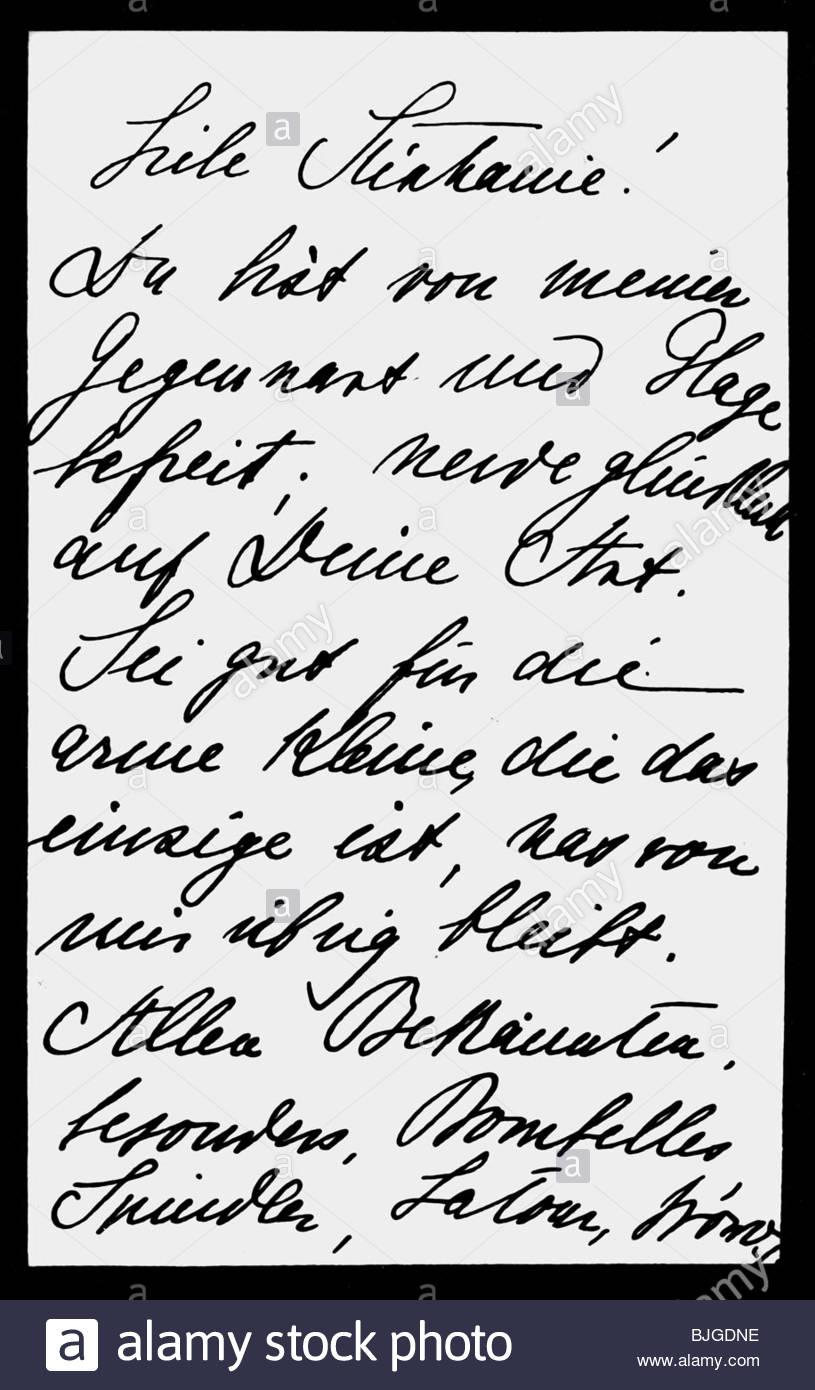 Liebe Stephanie!
Du bist von meiner
Gegenwart und Plage
befreit; werde glücklich
auf Deine Art.
Sei gut für die
arme Kleine, die das
einzige ist, was von
mir übrig bleibt.
Allen Bekannten,
besonders, Bombelles
Spindler, Latour, Wowo,
a alamy stock photo
BJGDNE
www.alamy.com